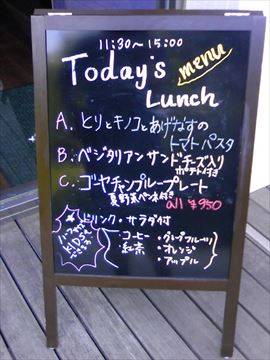 11:30~15:00
Today's
menu
Lunch
A. とりとキノコとあげなすの
トマトパスタ
B. ベジタリアンサンドチーズ入り
ポテト付き
C. ゴーヤチャンプループレート
夏野菜パン付き
all ¥950
ドリンク・サラダ付
コーヒー
紅茶
・グレープフルーツ
・オレンジ
・アップル
KIDS